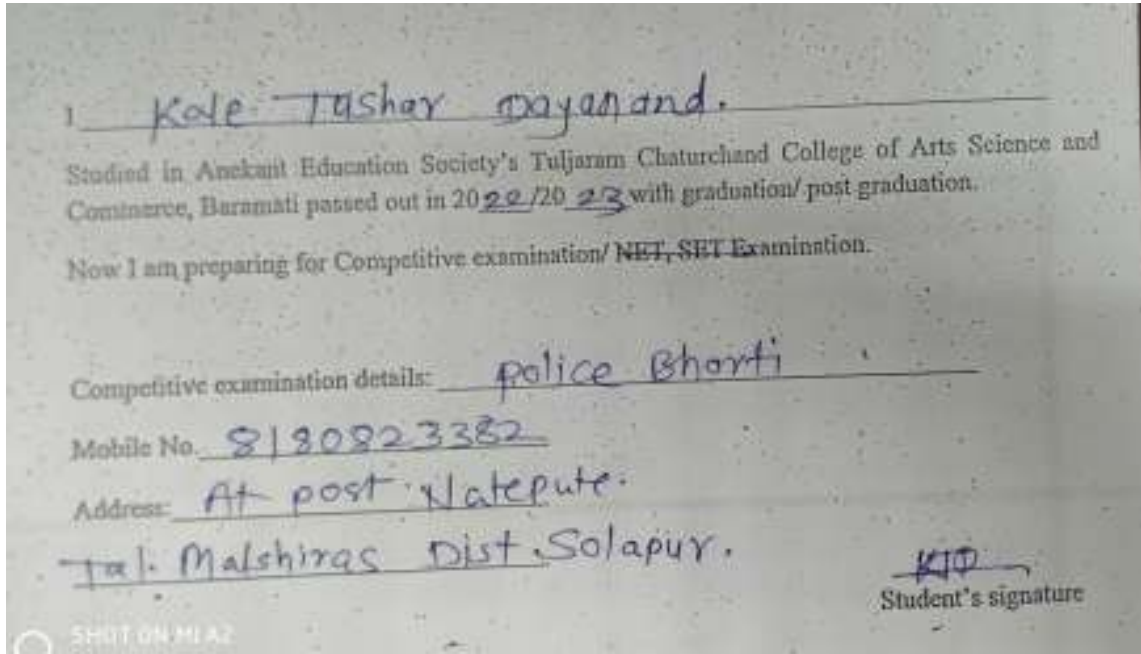 I Kale Tushar Dayanand.
Studied in Anekant Education Society's Tuljaram Chaturchand College of Arts Science and
Commerce, Baramati passed out in 2022/2023 with graduation/ post graduation.
Now I am preparing for Competitive examination/ NET, SET Examination.
Competitive examination details: police Bharti
Mobile No. 8180823382
Address: At post. Natepute.
Tal. Malshiras Dist. Solapur.
KTD
Student's signature
SHOT ON MI A2